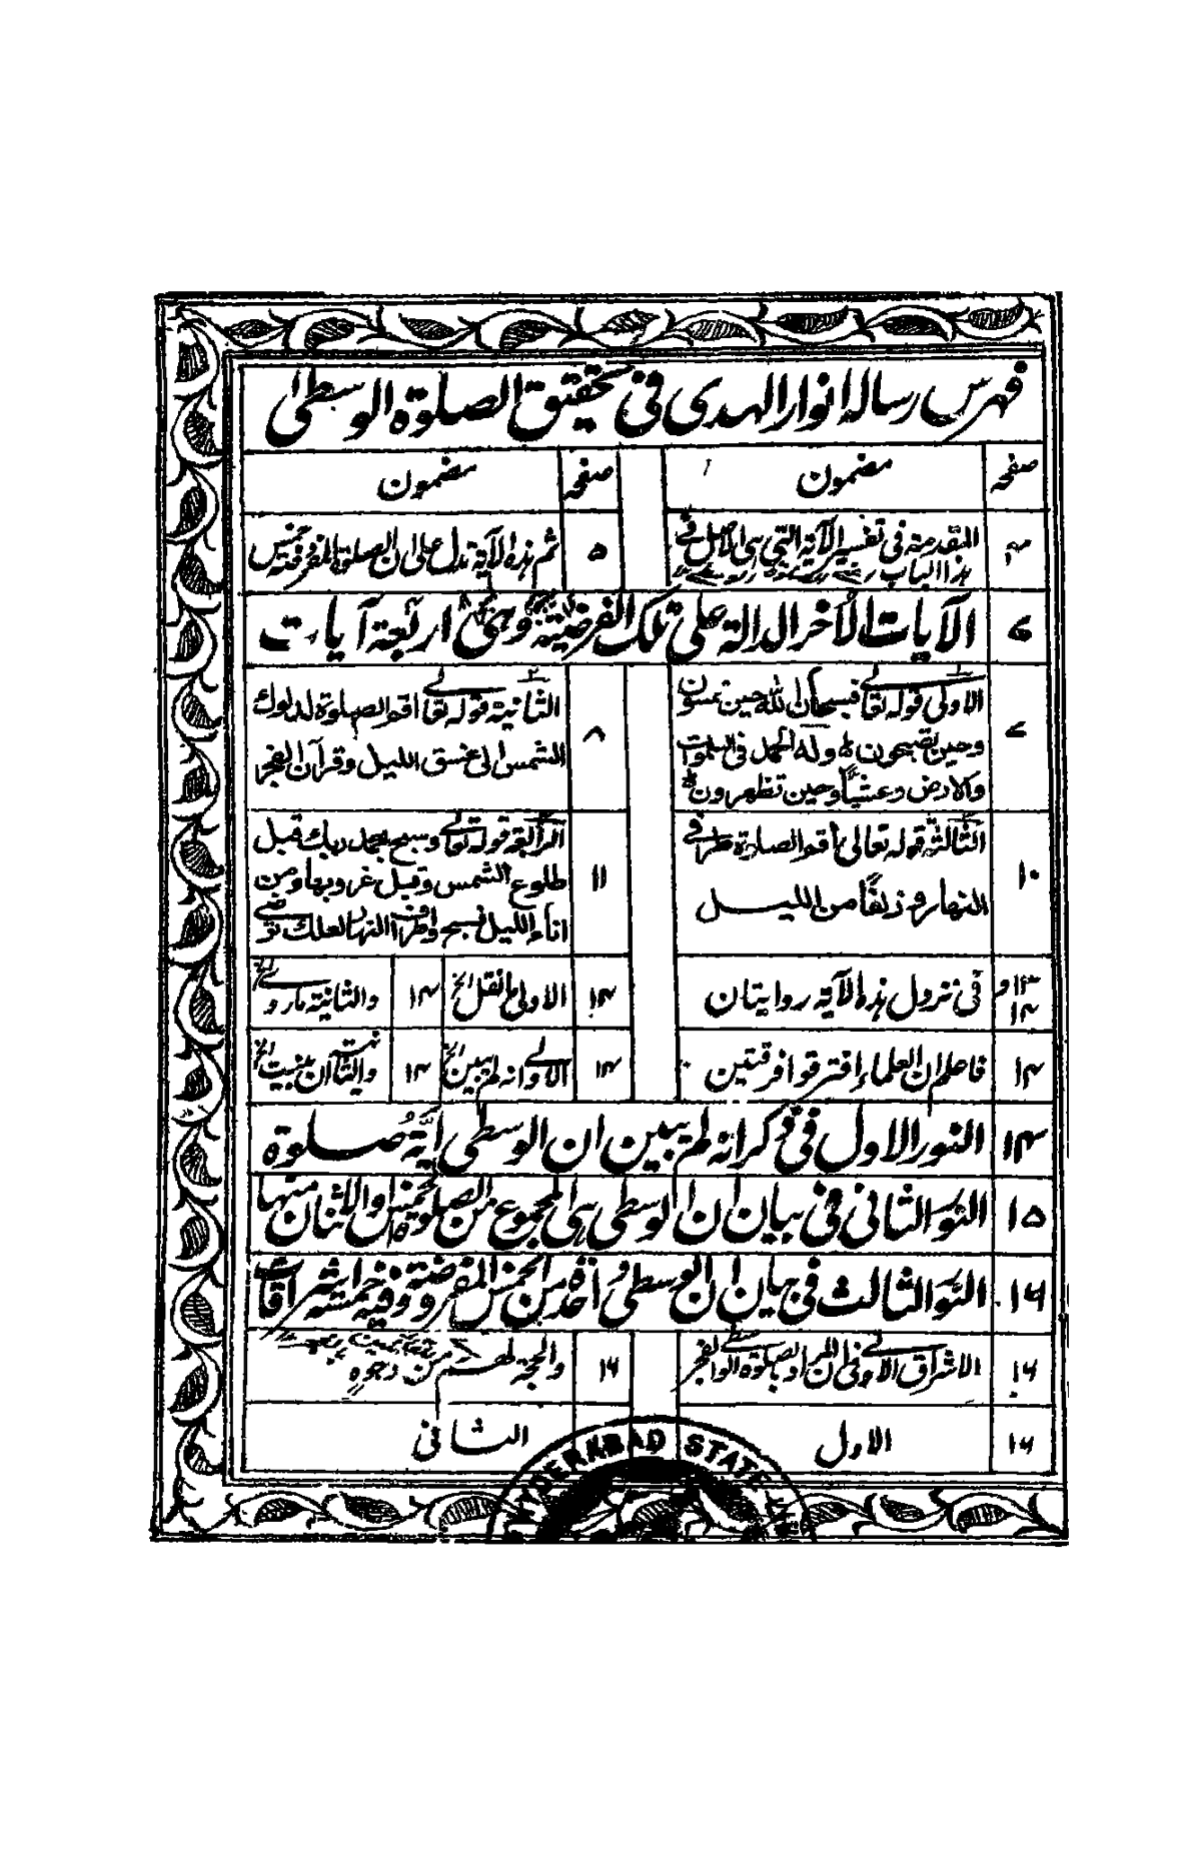 فهرس رساله انوار الهدى فى تحقيق الصلوة الوسطى
صفحه مضمون صفحه مضمون
المقدمة فى تفسير الآية التى هى الاصل فى
هذا الباب
۵ ثم هذه الآية تدل على ان الصلوة المفروضة خمس
الآيات الأخر الدالة على تلك الفرضية وهى اربعة آيات
۷ الاولى قوله تعالى فسبحان الله حين تمسون
وحين تصبحون وله الحمد فى السموات
والارض وعشيا وحين تظهرون
۸ الثانية قوله تعالى اقم الصلوة لدلوك
الشمس الى غسق الليل وقرآن الفجر
۱۰ الثالثة قوله تعالى اقم الصلوة طرفى
النهار وزلفًا من الليل
۱۱ الرابعة قوله تعالى وسبح بحمد ربك قبل
طلوع الشمس وقبل غروبها ومن
اناء الليل فسبح واطراف النهار لعلك ترضى
۱۳ و ۱۴ فى نزول هذه الآية روايتان
۱۴ الاولى ما نقل الخ
۱۴ والثانية ما روى الخ
۱۴ فاعلم ان العلماء افترقوا فرقتين
۱۴ الاولى انه لم يبين الخ
۱۴ والثانية
۱۴ النور الاول فى ذكر انه لم يبين ان الوسطى اية صلوة
۱۵ النور الثانى فى بيان ان الوسطى هى مجموع من الصلوة الخمس والاثنان منها
۱۶ النور الثالث فى بيان ان الوسطى واحدة من الخمس المفروضة وفيه خمسة اشراقات
۱۶ الاشراق الاول فى ان المراد بالصلوة الوسطى الفجر
۱۶ والحجة لهم من وجوه
۱۶ الاول
الثانى
HYDERABAD STATE